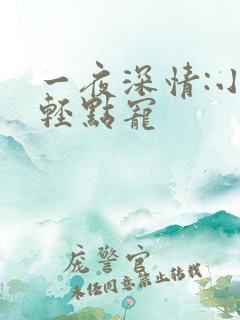 一夜深情:小
輕點寵
庞警官
未经同意禁止转载